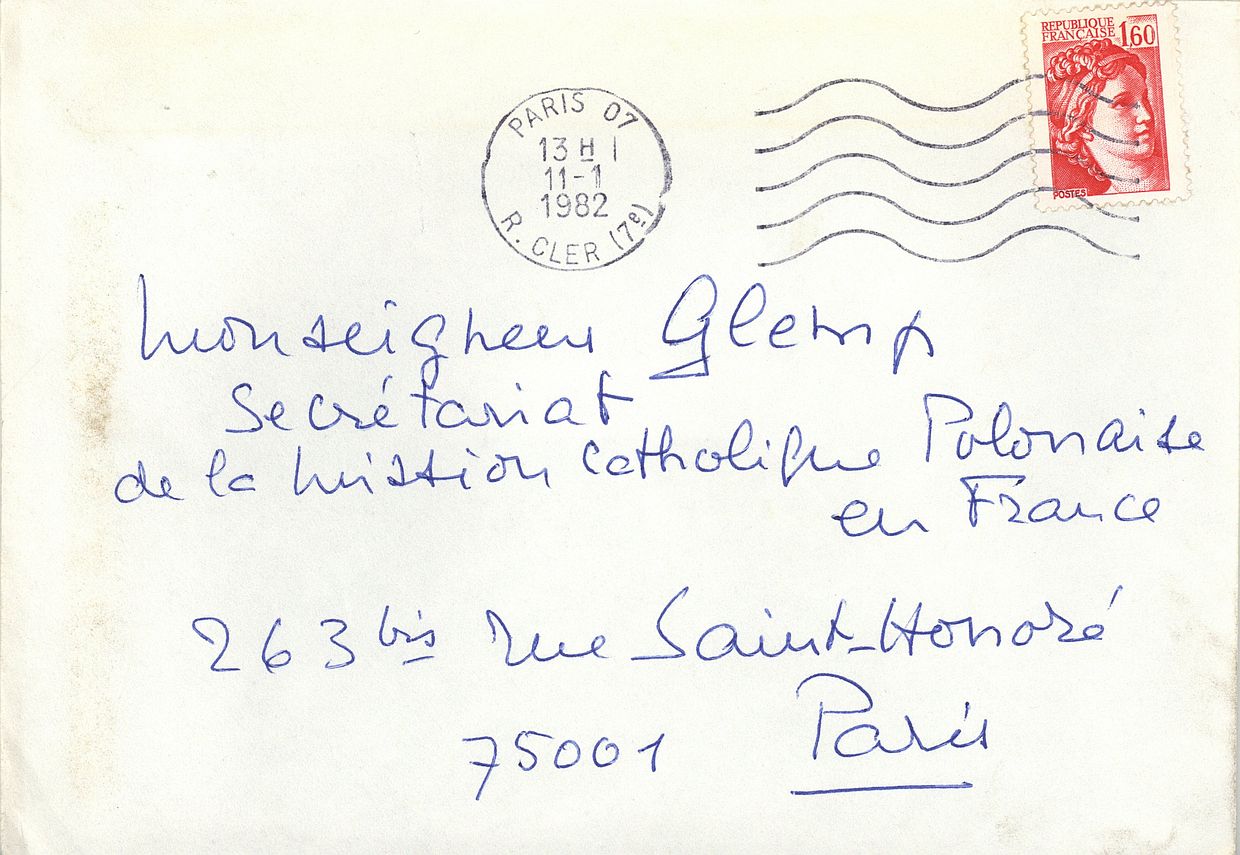 REPUBLIQUE
FRANÇAISE 1,60
POSTES
PARIS 07
13 H I
11-1
1982
R. CLER (7e)
Monseigneur Glemp
Secrétariat
de la Mission Catholique Polonaise
en France
263 bis rue Saint-Honoré
75001 Paris